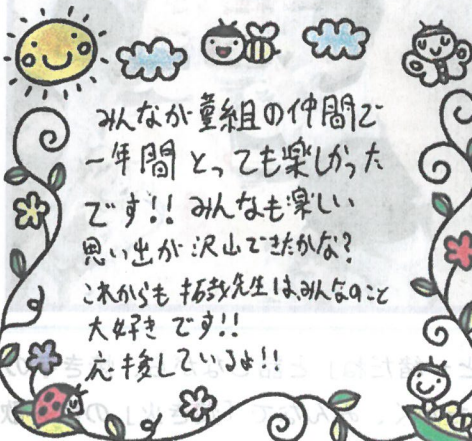 みんなが菫組の仲間で
一年間とっても楽しかった
です!! みんなも楽しい
思い出が沢山できたかな?
これからも拓哉先生は、みんなのこと
大好きです!!
応援しているよ!!